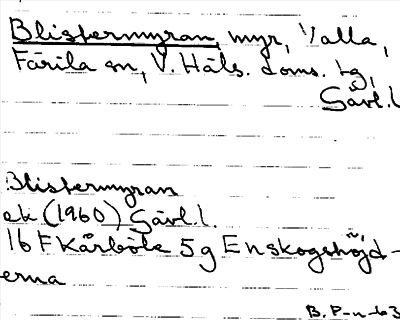 Blistermyran, myr, Valla,
Färila sn, V. Häls. doms. tg,
Gävl.l
Blistermyran
ek (1960) Gävl.l.
16 F Kårböle 5 g Enskogshöjd-
erna
B. P-n -63